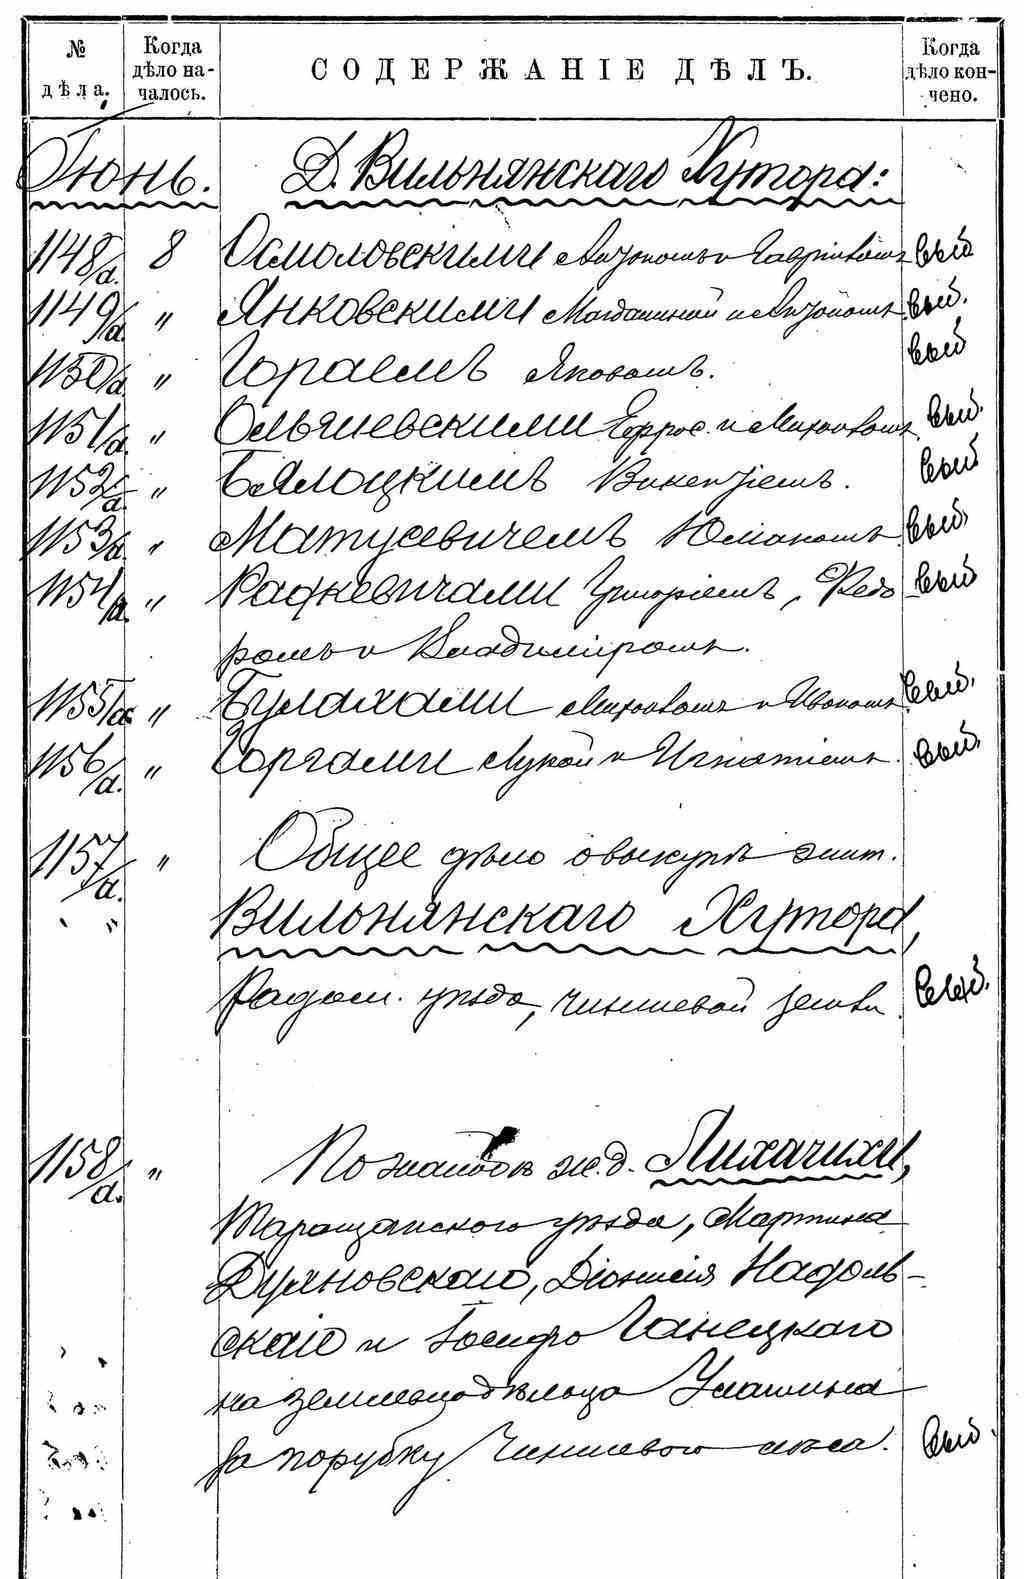 № дѣла. Когда дѣло началось. СОДЕРЖАНІЕ ДѢЛЪ. Когда дѣло кончено.
Іюнь. Д. Вильнянскаго Хутора:
1148/а. 8 Осмоловскими Антономъ и Гавріиломъ выб
1149/а. " Янковскими Магдалиной и Антономъ выб.
1150/а. " Гораемъ Яковомъ. выб
1151/а. " Ольшевскими Ефрос. и Михаиломъ выб.
1152/а. " Бялоцкимъ Викентіемъ. выб
1153/а. " Матусевичемъ Юліаномъ выб.
1154/а. " Радкевичами Григоріемъ, Ѳедо выб
ромъ и Владиміромъ.
1155/а " Булахами Михаиломъ и Иваномъ выб.
1156/а. " Горгами Лукой и Игнатіемъ. выб.
1157/а. " Общее дѣло о выкупѣ жит.
" Вильнянскаго Хутора,
Радом. уѣзда, чиншевой земли выб.
1158/а. " По жалобѣ ж. д. Лихачихи,
Таращанскаго уѣзда, Мартина
Діонисія Надоль-
скаго и Іосифа Ганецкаго
на землевладѣльца
за порубку чиншеваго лѣса. выб.